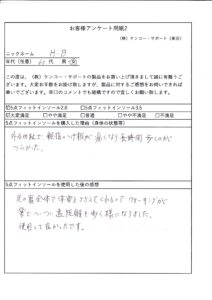 お客様アンケート用紙2
(株)ケンコー・サポート(東京)
ニックネーム H-B
年代(任意) 代 男・女
この度は、(株)ケンコー・サポートの製品をお買い上げ頂きまして誠に有難うござい
ます。大変お手数をお掛け致しますが、製品に対するご感想をお聞かせいただければ幸
いでございます。辛口のコメントでも結構ですので宜しくお願い致します。
☑5点フィットインソール2.0 □5点フィットインソール3.5
☑大変満足 □やや満足 □普通 □やや不満足 □不満足
5点フィットインソールを購入した理由(身体の状態等)
外反母趾で 親指の付根が 痛くなり 長時間 歩くのが
つらかった。
5点フィットインソールを使用した後の感想
足の裏全体で体重をささえてくれるので ウォーキングが
楽しく 遠距離を歩く様になりました。
使用して良かったです。